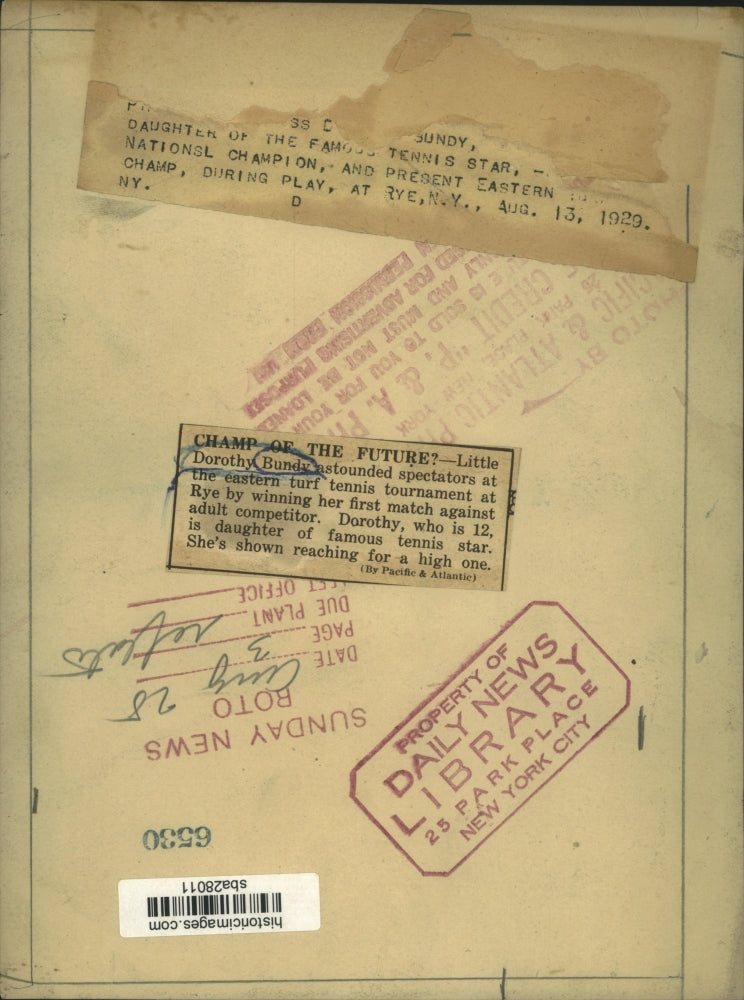 SS D BUNDY,
DAUGHTER OF THE FAMOUS TENNIS STAR,
NATIONSL CHAMPION, AND PRESENT EASTERN
CHAMP, DURING PLAY, AT RYE,N.Y., AUG. 13, 1929.
NY. D
PHOTO BY
PACIFIC & ATLANTIC
25 PARK PLACE NEW YORK
CREDIT "P. & A.
IS SOLD TO YOU FOR YOUR
ONLY AND MUST NOT BE LOANED
USED FOR ADVERTISING PURPOSES
PERMISSION FROM US
CHAMP OF THE FUTURE?—Little
Dorothy Bundy astounded spectators at
the eastern turf tennis tournament at
Rye by winning her first match against
adult competitor. Dorothy, who is 12,
is daughter of famous tennis star.
She's shown reaching for a high one.
(By Pacific & Atlantic)
SUNDAY NEWS
ROTO
DATE Aug 25
PAGE 3
DUE PLANT
OFFICE
PROPERTY OF
DAILY NEWS
LIBRARY
25 PARK PLACE
NEW YORK CITY
6530
historicimages.com
sba28011